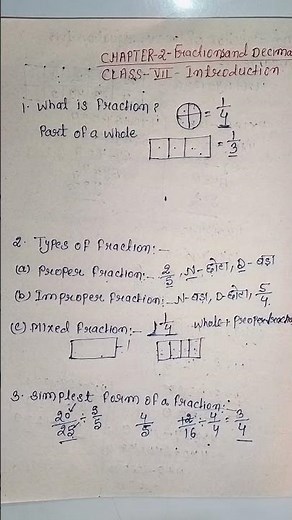 CHAPTER-2-Fractions and Decima
CLASS-VII- Introduction
1. What is fraction? = 1/4
Part of a whole = 1/3
2. Types of fraction:-
(a) Proper fraction:- 2/5, N-छोटा, D-बड़ा
(b) Improper fraction:- N-बड़ा, D-छोटा, 5/4
(c) Mixed fraction:- 1 1/4 whole + proper fraction
1
3. Simplest form of a fraction:-
20/25 ÷ 5/5 4/5 12/16 ÷ 4/4 = 3/4